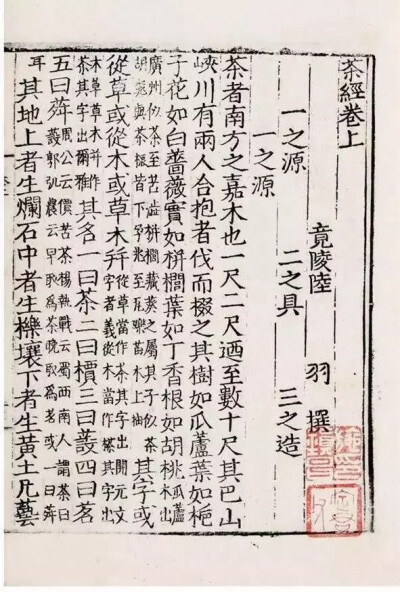 茶經卷上
竟陵陸 羽 撰
一之源 二之具 三之造
一之源
茶者南方之嘉木也一尺二尺迺至數十尺其巴山
峽川有兩人合抱者伐而掇之其樹如瓜蘆葉如梔
子花如白薔薇實如栟櫚葉如丁香根如胡桃瓜蘆木出
廣州似茶至苦澁栟櫚蒲葵之屬其子似茶胡桃與茶根皆下孕兆至瓦礫苗木上抽其字或
從草或從木或草木并從草當作茶其字出開元文字者義從木當作其字出
木草草木并作茶其字出爾雅其名一曰茶二曰檟三曰蔎四曰茗
五曰荈周公云檟苦茶楊執戟云蜀西南人謂茶曰蔎郭弘農云早取為茶晚取為茗或一曰荈
耳其地上者生爛石中者生櫟壤下者生黄土凡藝